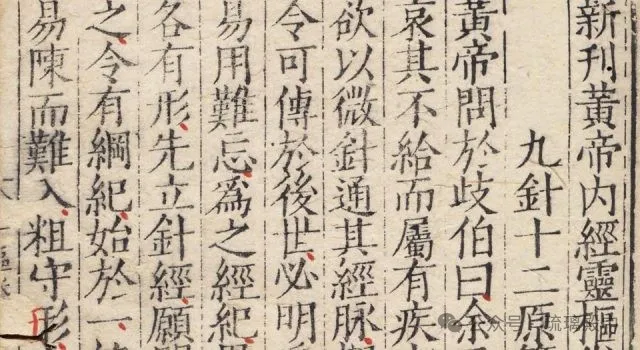 新刊黃帝内經靈樞
九針十二原
黃帝問於歧伯曰余
哀其不給而屬有疾
欲以微針通其經脉
令可傳於後世必明
易用難忘爲之經紀
各有形先立針經願
之令有綱紀始於一
易陳而難入粗守形
公众号